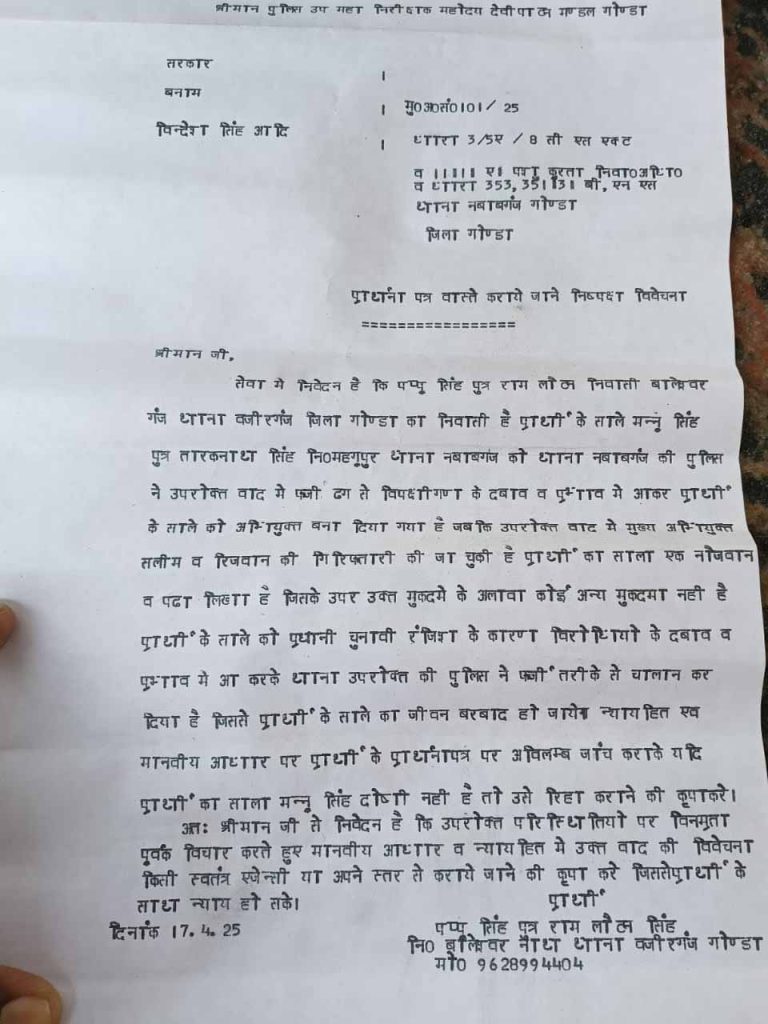 श्रीमान पुलिस उप महा निरीक्षक महोदय देवीपाटन मण्डल गोण्डा
सरकार ।
बनाम । मु0अ0सं0101/ 25
विन्देश सिंह आदि । धारा 3/5ए / 8 सी एस एक्ट
व 11॥। ए। पशु क्रूरता निवा0अधि0
व धारा 353, 351॥3॥ बी, एन एस
थाना नबाबगंज गोण्डा
जिला गोण्डा
प्रार्थना पत्र वास्ते कराये जाने निष्पक्ष विवेचना
=================
श्रीमान जी,
सेवा मे निवेदन है कि पप्पू सिंह पुत्र राम लौटन निवासी बालेश्वर
गंज थाना वजीरगंज जिला गोण्डा का निवासी है प्रार्थी के साले मन्नू सिंह
पुत्र तारकनाथ सिंह नि0महगूपुर थाना नबाबगंज को थाना नबाबगंज की पुलिस
ने उपरोक्त वाद मे फर्जी ढग से विपक्षीगण के दबाव व प्रभाव मे आकर प्रार्थी
के साले को अभियुक्त बना दिया गया है जबकि उपरोक्त वाद मे मुख्य अभियुक्त
सलीम व रिजवान की गिरिफ्तारी की जा चुकी है प्रार्थी का साला एक नौजवान
व पढा लिखा है जिसके उपर उक्त मुकदमे के अलावा कोई अन्य मुकदमा नही है
प्रार्थी के साले को प्रधानी चुनावी रंजिश के कारण विरोधियो के दबाव व
प्रभाव मे आ करके थाना उपरोक्त की पुलिस ने फर्जी तरीके से चालान कर
दिया है जिससे प्रार्थी के साले का जीवन बरबाद हो जायेगा न्यायहित एव
मानवीय आधार पर प्रार्थी के प्रार्थनापत्र पर अविलम्ब जांच कराके यदि
प्रार्थी का साला मन्नू सिंह दोषी नही है तो उसे रिहा कराने की कृपाकरे।
अतः श्रीमान जी से निवेदन है कि उपरोक्त परिस्थितियो पर विनम्रता
पूर्वक विचार करते हुए मानवीय आधार व न्यायहित मे उक्त वाद की विवेचना
किसी स्वतंत्र एजेन्सी या अपने स्तर से कराये जाने की कृपा करे जिससेप्रार्थी के
साथ न्याय हो सके। प्रार्थी
दिनांक 17.4.25 पप्पू सिंह पुत्र राम लौटन सिंह
नि0 बालेश्वर थाना वजीरगंज गोण्डा
मो0 9628994404